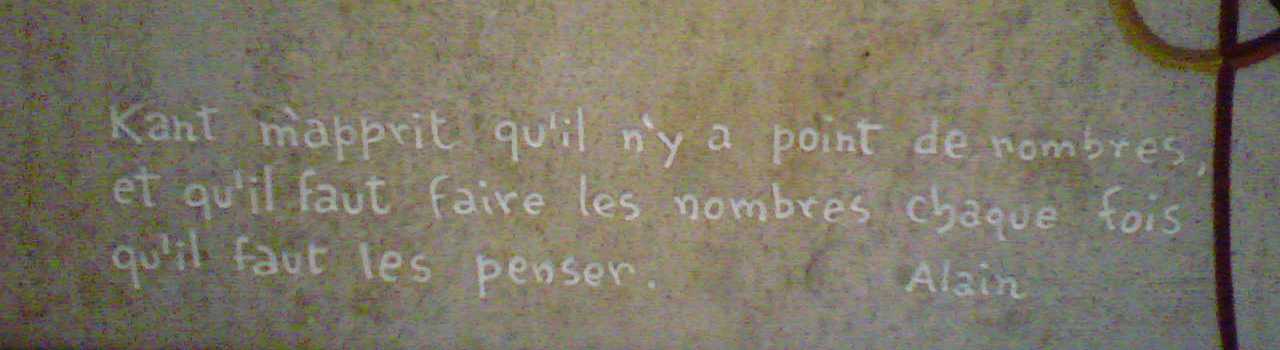 Kant m'apprit qu'il n'y a point de nombres,
et qu'il faut faire les nombres chaque fois
qu'il faut les penser.
Alain